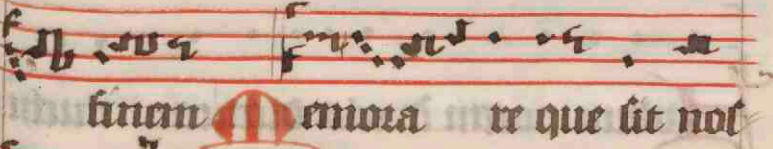 finem Memora re que sit nos